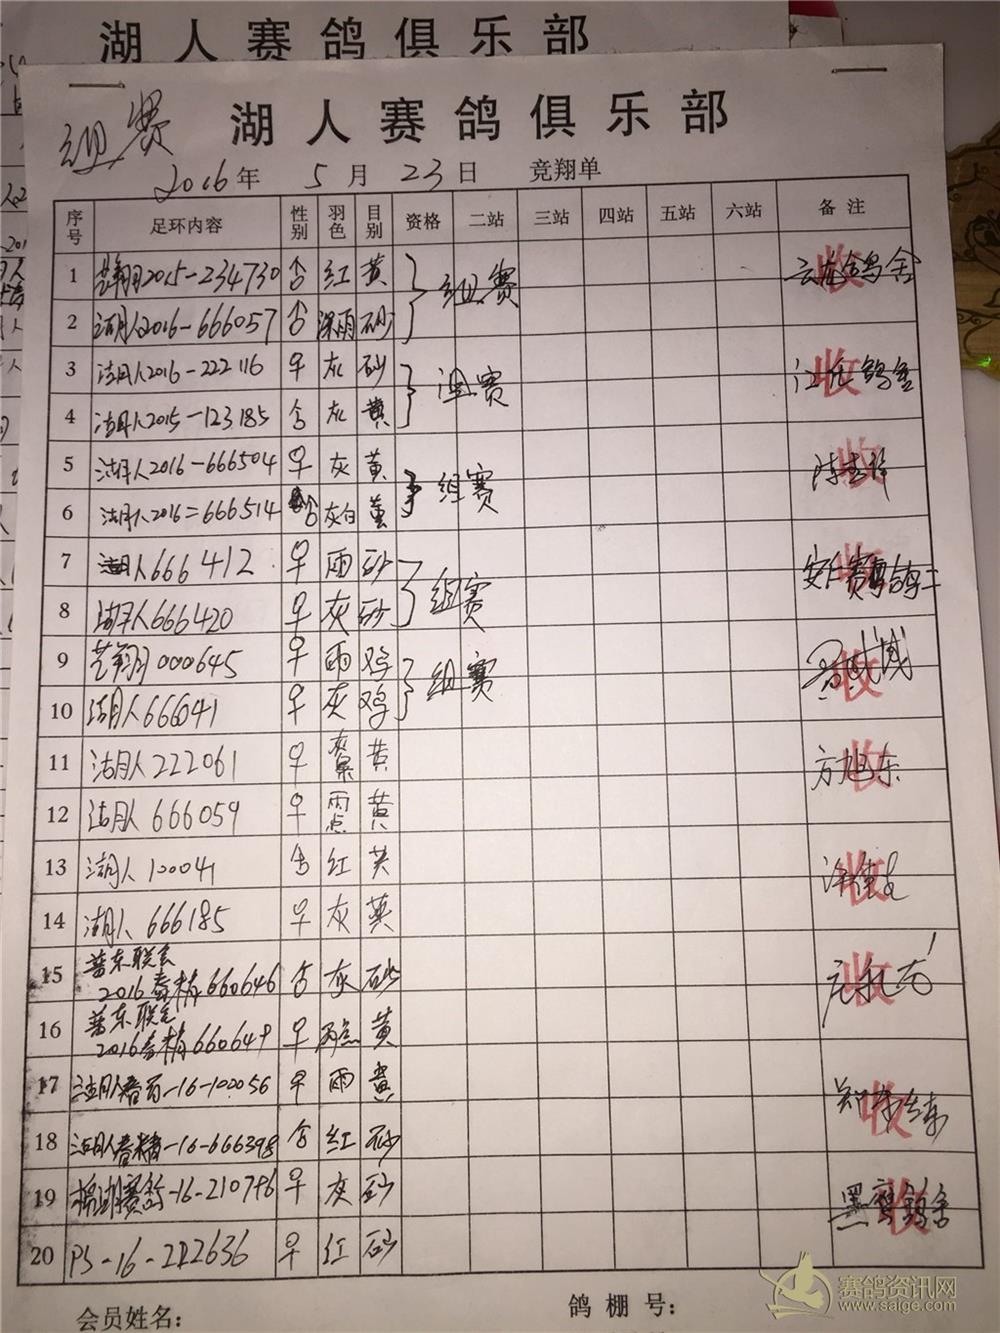 湖人赛鸽俱乐部
组赛 湖人赛鸽俱乐部
2016年 5月 23日 竞翔单
序号 足环内容 性别 羽色 目别 资格 二站 三站 四站 五站 六站 备注
1 艺翔2015-234730 合 红 黄 组赛 收
2 湖人2016-666057 合 深雨 砂
3 湖人2016-222116 早 灰 砂 组赛 江氏鸽舍 收
4 湖人2015-123185 合 灰 黄
5 湖人2016-666504 早 灰 黄 组赛 收
6 湖人2016-666514 合 灰白 黄
7 湖人666412 早 雨 砂 组赛 收
8 湖人666420 早 灰 砂
9 艺翔000645 早 雨 鸡 组赛 收
10 湖人666041 早 灰 鸡
11 湖人222061 早 黄 方旭东 收
12 湖人666059 早 雨点 黄
13 湖人100041 合 红 黄 收
14 湖人666185 早 灰 黄
15 普东联会 2016春棉660646 合 灰 砂 收
16 普东联会 2016春棉660649 早 雨点 黄
17 湖人春百-16-100056 早 雨 黄 收
18 湖人春棉-16-666398 合 红 砂
19 棉湖赛鸽-16-210796 早 灰 砂 黑鹰鸽舍 收
20 PS-16-222636 早 红 砂
会员姓名: 鸽棚号:
赛鸽资讯网
www.saige.com